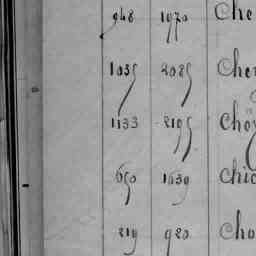 948 1970 Che
1035 2085 Cher
1133 2195 Choy
650 1939 Chic
219 920 Cho